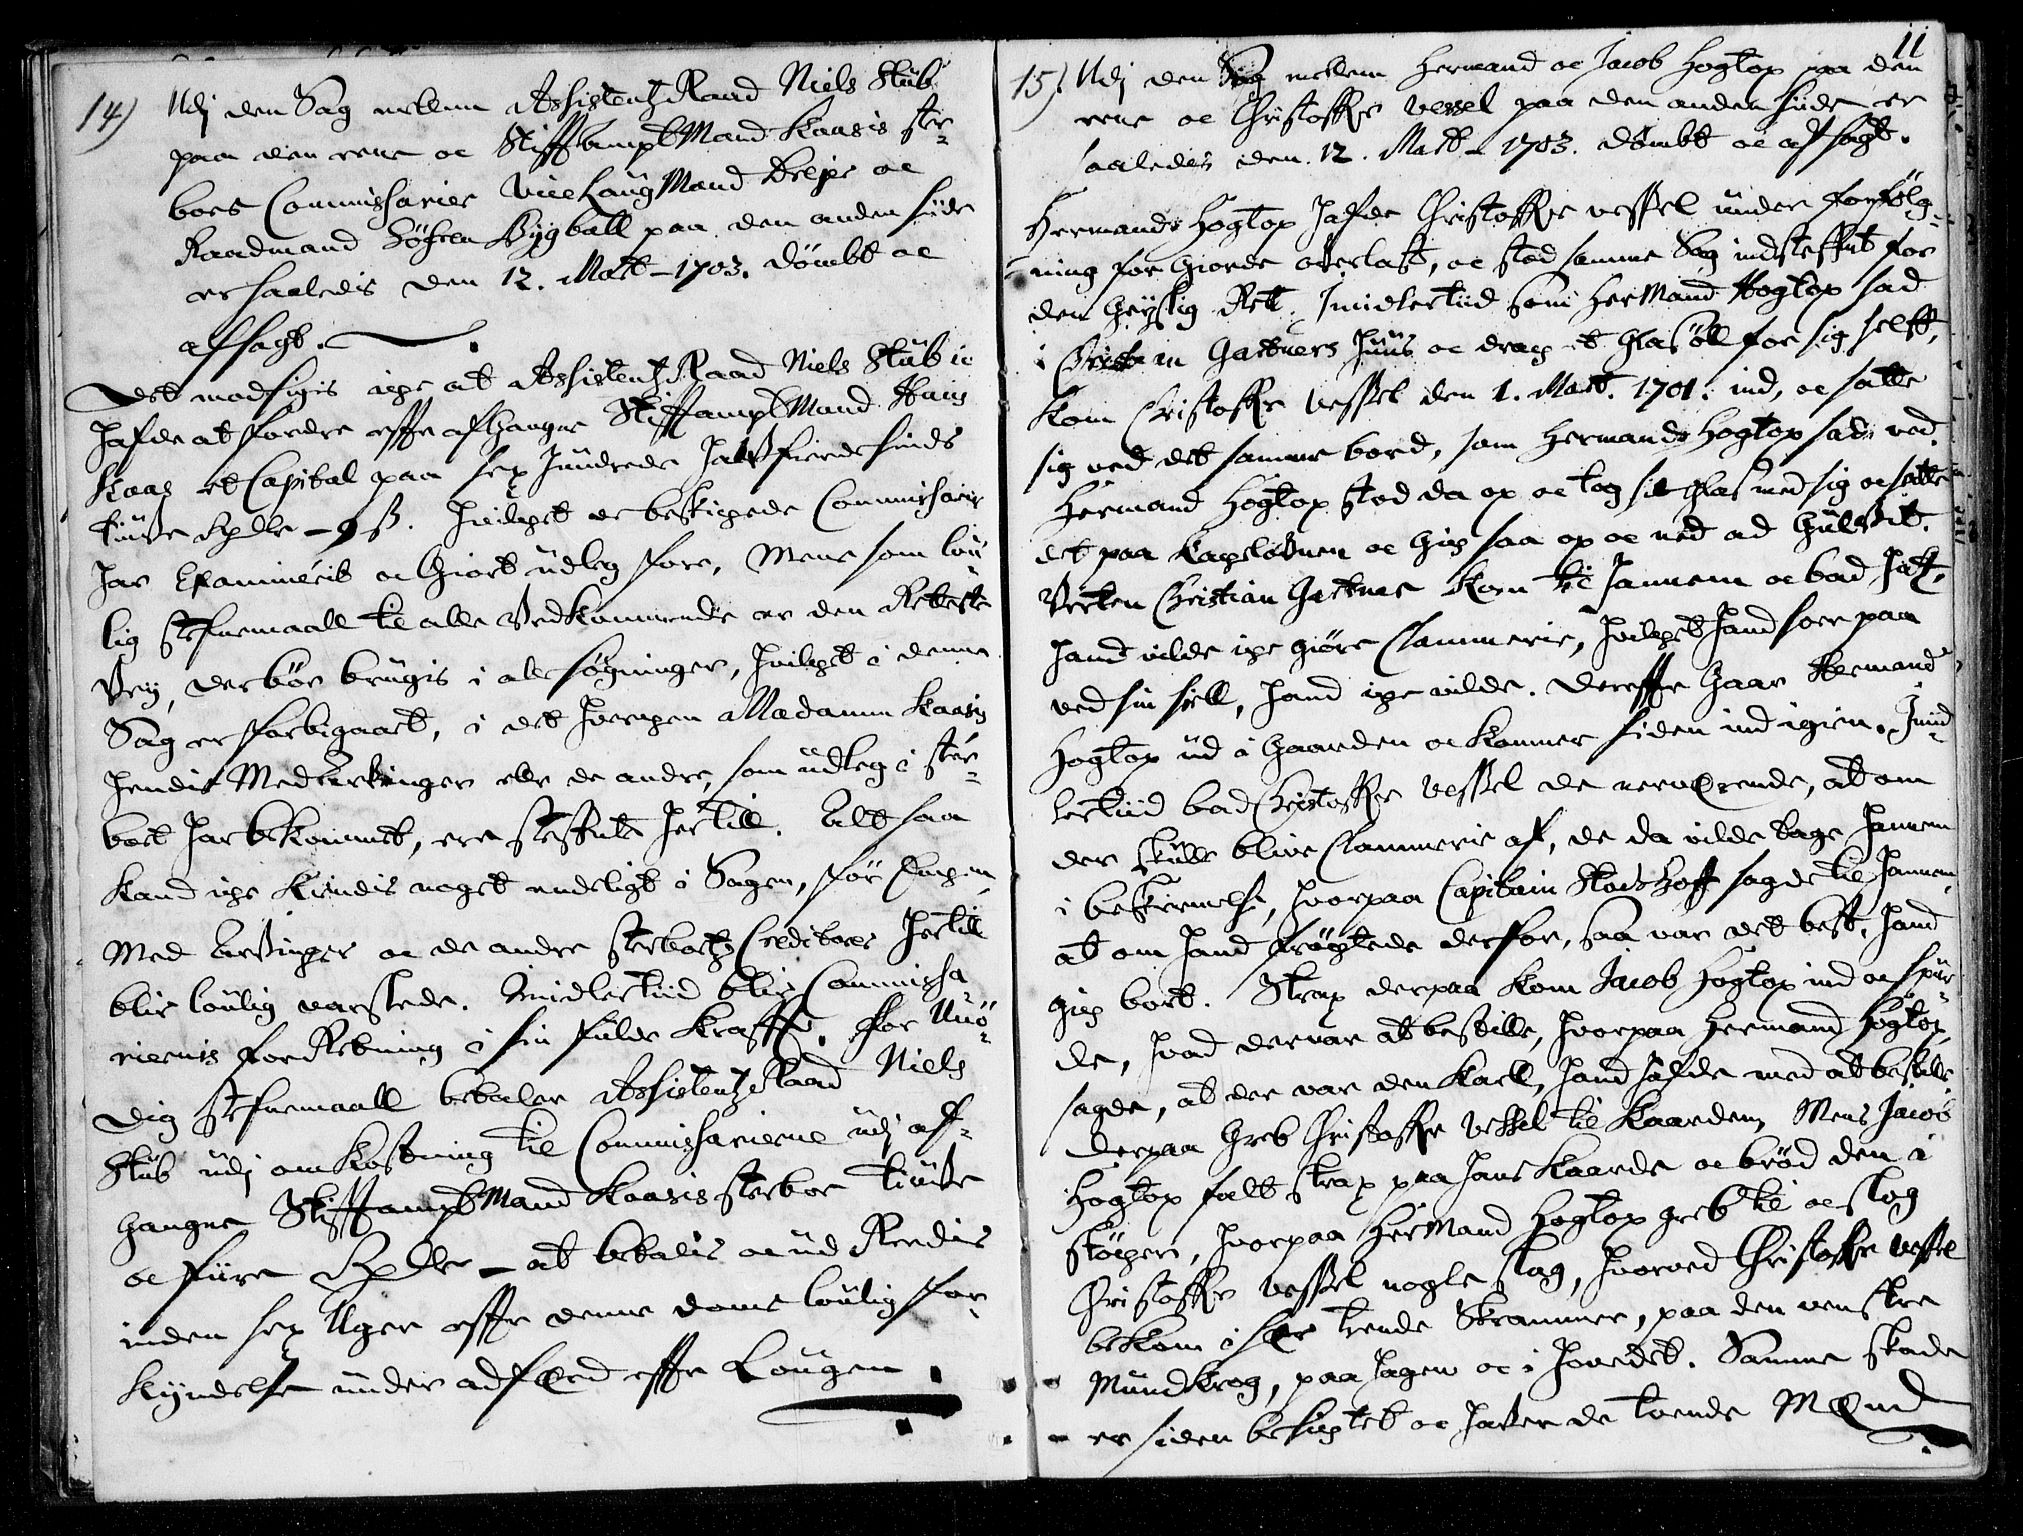 14) Udj den Sag mellem Assistentz Raad Niels Stub
paa den eene oc Stiffambtmand Kaasis ster¬
boes Commissarier Vice Laugmand Dreyer oc
Raadmand Søfren Bygball paa den anden side
er saaledis den 12. Mart. 1703. dömbt oc
afsagt.
Det modsigis icke at Assistentz Raad Niels Stub io
hafde at fordre effter afgangne Stiffambtmand Hans
Kaas et Capital paa sex hundrede halffierdesinds
tiufve Rdlr - 9 ß. hvilcket er beskickede Commissarier
har Examinerit oc giort udleg fore, Mens som lou¬
lig stefnemaall til alle Vedkommende er den Retteste
Vey, der bør brugis i all søgninger, hvilcket i denne
Sag er forbigaaet, i det hvercken Madamme Kaasis
hendis Medarfvinger eller de andre, som udleg i ster¬
boet har bekommet, ere steffnt hertill. Altsaa
kand icke kiendis noget endeligt i Sagen, før Encken,
Med Arfvinger oc de andre sterboetz Creditores hertill
blir loulig varslede. Imidlertiid blir Commissa¬
riernis forRetning i sin fulde Krafft. for Unö¬
dig Stefnemaall betaler Assistentz Raad Niels
Stub udj omkostning til Commissarierne udj af¬
gangne Stiffambtmand Kaasis sterboe tiufve
oc fiire Rdlr - at betalis oc udRedis
inden sex Uger effter denne doms loulig for¬
kyndelse under adfærd effter Lougen.
11
15). Udj den Sag mellem Hermand oc Jacob Hogtop paa den
eene oc Christoffer Vessel paa den anden siide er
saaledis den 12. Mart. 1703. dömbt oc afsagt.
Hermand Hogtop hafde Christoffer vessel under forfølg¬
ning for giorde ofverlast, oc stod samme Sag indsteffnt for
den gejstlig Ret. Imidlertiid som HerMand Hogtop sad
i Christian Gartners Huus oc drack et glas öll for sig selff,
kom Cristoffer Vessel den 1. Mart. 1701. ind, oc satte
sig ved det samme bord, som Hermand Hogtop sad ved.
Hermand Hogtop stod da op oc tog sit glas med sig oc satte
det paa Kackelofnen oc gick saa op oc ned ad gulfvit.
Verten Christian Gartner kom til hannem oc bad hafve,
hand vilde icke giöre Clammerie, hvilcket hand soer paa
ved sin siell, hand icke vilde. Dereffter gaar Hermand
Hogtop ud i gaarden oc kommer siden ind igien. Imid¬
lertiid bad Christoffer Vessel de nerværende, at om
der skulle blive Clammerie af, de da vilde tage hannem
i beskiermelse, hvorpaa Capitain Stockhoff sagde til hannem,
at om hand frögtede derfor, saa var det best, hand
gick bort. Strax derpaa kom Jacob Hogtop ind oc spur¬
de, hvad der var at bestille, hvorpaa Hermand Hogtop
sagde, at der var den Karll, hand hafde med at bestille,
derpaa greb Christoffer Vessel til Kaarden, Mens Jacob
Hogtop falt strax paa hans Kaarde oc brød den i
støcker, hvorpaa HerMand Hogtop greb til oc slog
Christoffer Vessel nogle slag, hvorved Christoffer Vessel
bekom i sær trende Skrammer, paa den venstre
Mundkrog, paa hagen oc i hovedet. Samme skade
er siden besigtet oc hafver de toende Mænd